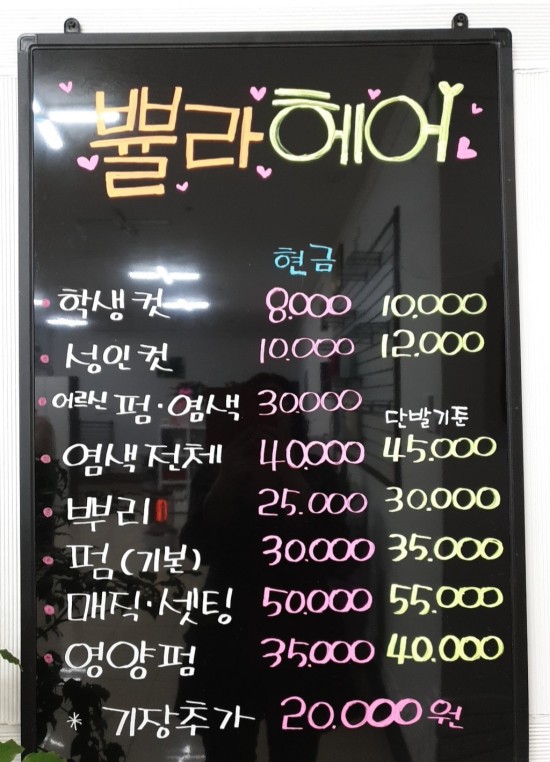 뿔라헤어
현금
학생컷 8.000 10.000
성인컷 10.000 12.000
어르신 펌·염색 30.000
단발기준
염색전체 40.000 45.000
뿌리 25.000 30.000
펌(기본) 30.000 35.000
매직·셋팅 50.000 55.000
영양펌 35.000 40.000
* 기장추가 20.000원